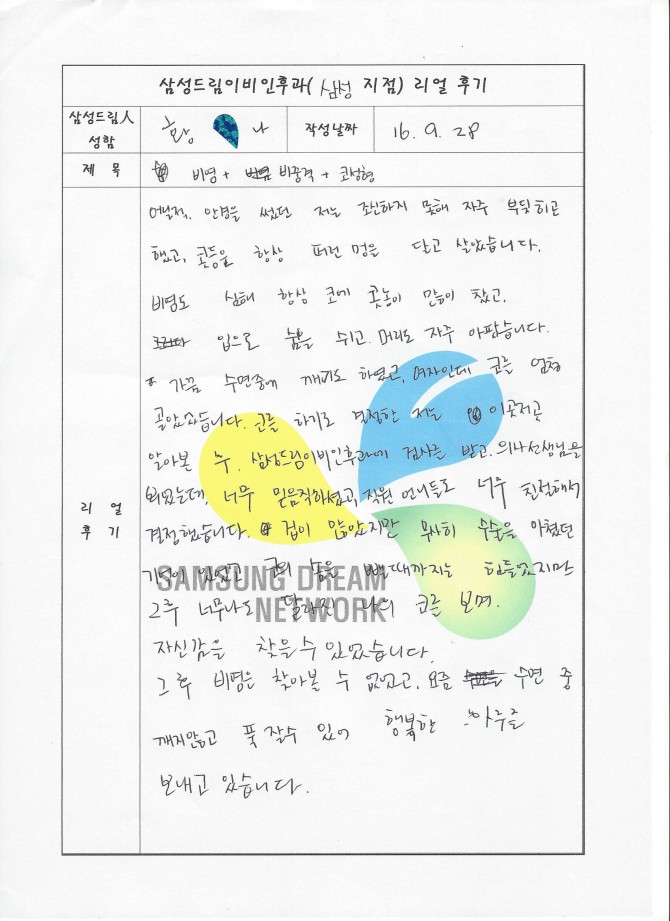 삼성드림이비인후과( 삼성 지점) 리얼 후기
삼성드림人
성함
황 나
작성날짜
16. 9. 28
제 목
비염 + 비중격 + 코성형
리 얼
후 기
어릴적, 안경을 썼던 저는 조신하지 못해 자주 부딪히고
했고, 콧등을 항상 퍼런 멍을 달고 살았습니다.
비염도 심해 항상 코에 콧농이 많이 찼고,
입으로 숨을 쉬고 머리도 자주 아팠습니다.
가끔 수면중에 깨기도 하였고, 여자인데 코를 엄청
골았었습니다. 수술을 하기로 결정한 저는 이곳저곳
알아본 후, 삼성드림이비인후과에 검사를 받고. 의사선생님을
뵈었는데, 너무 믿음직하셨고, 직원 언니들도 너무 친절해서
결정했습니다. 겁이 많았지만 무사히 수술을 마쳤던
기억이 있었고 코의 솜을 뺄때까지는 힘들었지만
그후 너무나도 달라진 나의 코를 보며.
자신감을 찾을수 있었습니다.
그 후 비염은 찾아볼 수 없었고, 요즘 수면 중
깨지않고 푹 잘수 있어 행복한 하루를
보내고 있습니다.
SAMSUNG DREAM
NETWORK